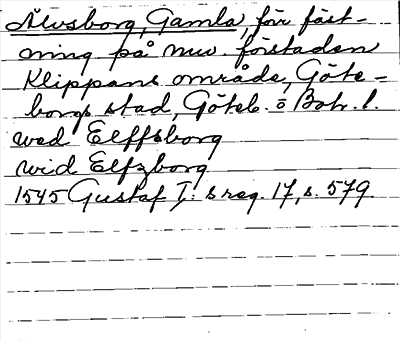 Älvsborg, Gamla, för fäst-
ning på nuv. förstaden
Klippans område, Göte-
borgs stad, Göteb. o Boh. l.
wed Elffsborg
wid Elfzborg
1545 Gustaf I: s reg. 17, s. 579.